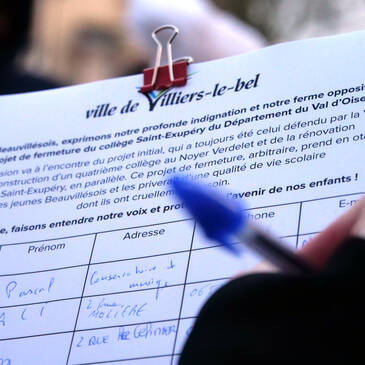 ville de Villiers-le-bel
Beauvillésois, exprimons notre profonde indignation et notre ferme opposi
projet de fermeture du collège Saint-Exupéry du Département du Val d'Oise
sion va à l'encontre du projet initial, qui a toujours été celui défendu par la
onstruction d'un quatrième collège au Noyer Verdelet et de la rénovation
Saint-Exupéry, en parallèle. Ce projet de fermeture, arbitraire, prend en ot
es jeunes Beauvillésois et les priverait d'une qualité de vie scolaire
dont ils ont cruellement besoin.
, faisons entendre notre voix et pro l'avenir de nos enfants !
Prénom Adresse phone E-
Pascal Conservatoire de musique
ALI 2 rue MOLIERE
2 RUE